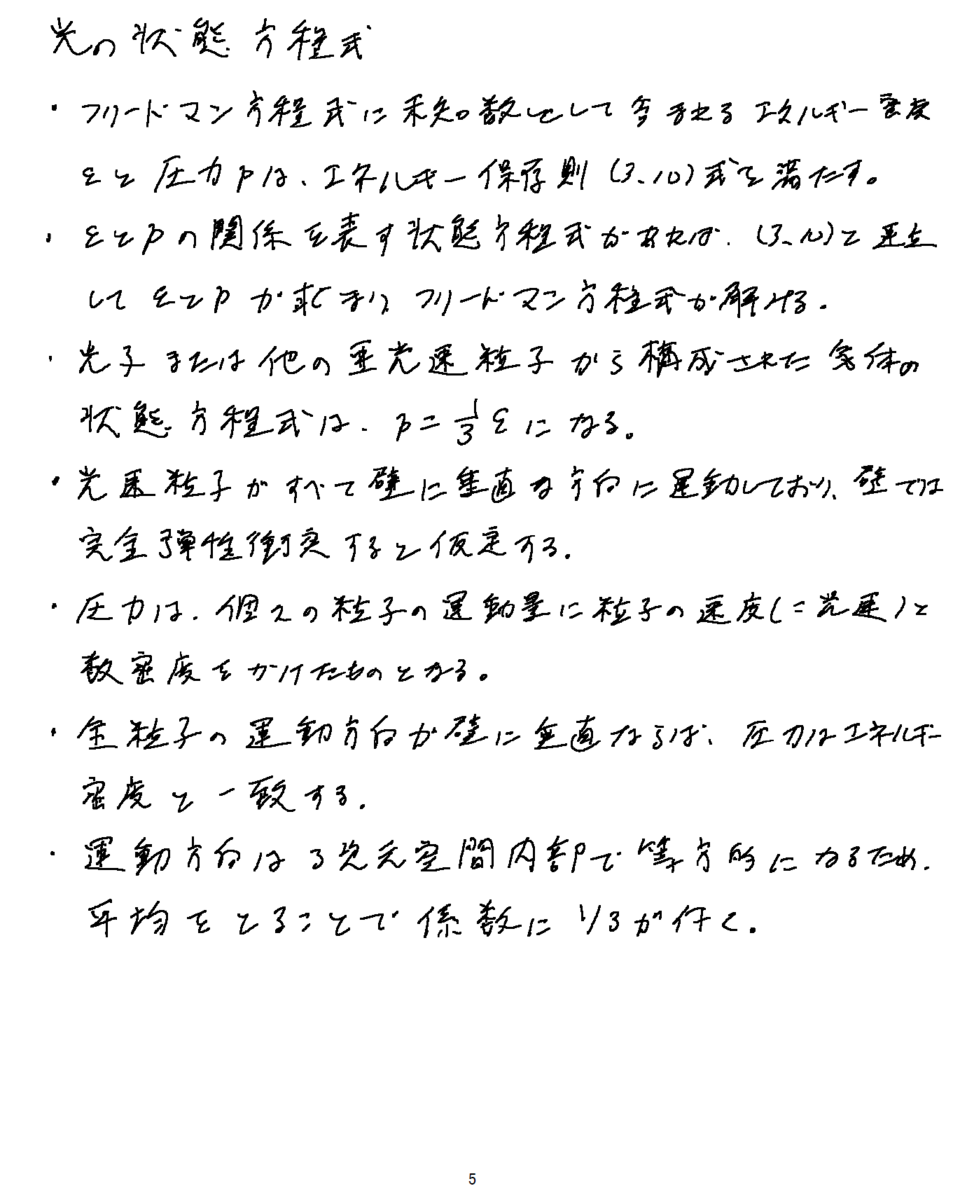 光の状態方程式
・フリードマン方程式に未知数として含まれるエネルギー密度
εと圧力pは、エネルギー保存則(3.10)式を満たす。
・εとpの関係を表す状態方程式があれば、(3.10)と連立
してεとpが求まり、フリードマン方程式が解ける。
・光子または他の亜光速粒子から構成された気体の
状態方程式は、p=1/3 εになる。
・光速粒子がすべて壁に垂直な方向に運動しており、壁では
完全弾性衝突すると仮定する。
・圧力は、個々の粒子の運動量に粒子の速度(=光速)と
数密度をかけたものとなる。
・全粒子の運動方向が壁に垂直ならば、圧力はエネルギー
密度と一致する。
・運動方向は3次元空間内部で等方的になるため、
平均をとることで係数に1/3が付く。
5